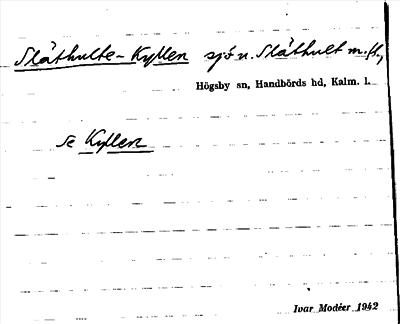 Slåthulte-Kyllen sjö v. Slåthult m. fl.,
Högsby sn, Handbörds hd, Kalm. l.
se Kyllen
Ivar Modéer 1942